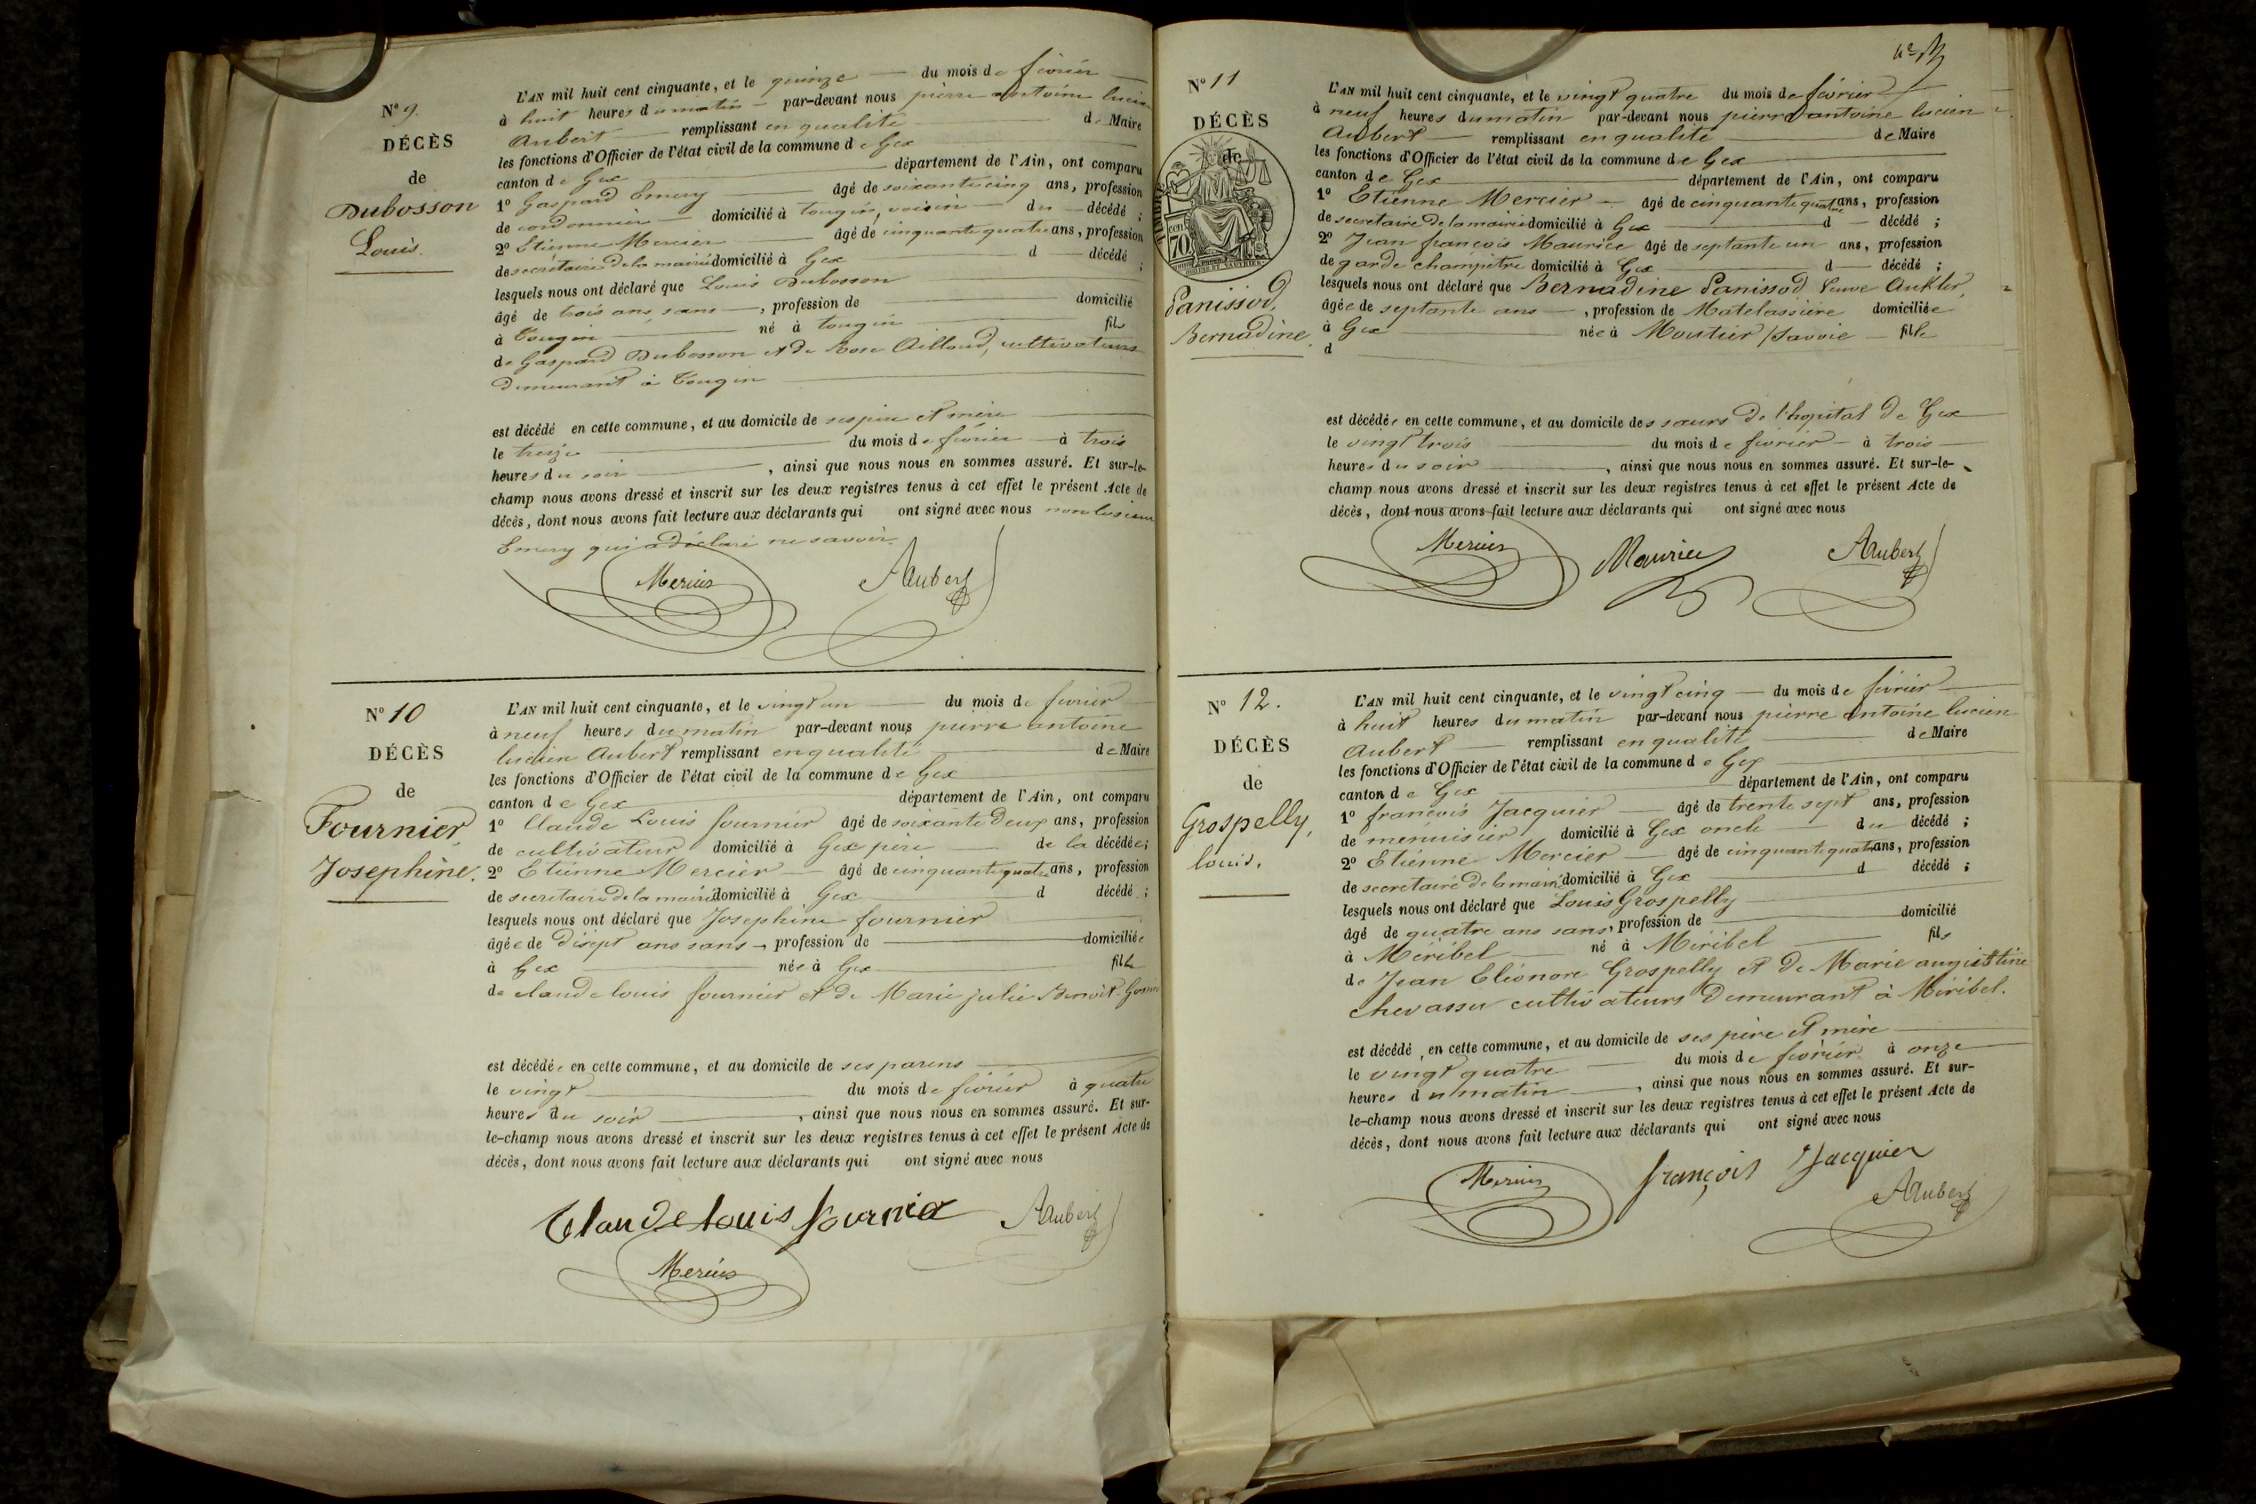 Nº 9.
DÉCÈS
de
Dubosson
Louis.
L'AN mil huit cent cinquante, et le quinze du mois de février
à huit heures du matin par-devant nous pierre antoine lucien
Aubert remplissant en qualité de Maire
les fonctions d'Officier de l'état civil de la commune de Gex
canton de Gex département de l'Ain, ont comparu
1º Gaspard Emery âgé de soixante cinq ans, profession
de cordonnier domicilié à tougin, voisin du décédé ;
2º Etienne Mercier âgé de cinquante quatre ans, profession
de secrétaire de la mairie domicilié à Gex d décédé ;
lesquels nous ont déclaré que Louis Dubosson
âgé de trois ans, sans , profession de domicilié
à Tougin né à tougin fils
de Gaspard Dubosson et de Rose Aillaud, cultivateurs
demeurant à Tougin
est décédé en cette commune, et au domicile de ses père et mère
le treize du mois de février à trois
heures du soir , ainsi que nous nous en sommes assuré. Et sur-le-
champ nous avons dressé et inscrit sur les deux registres tenus à cet effet le présent Acte de
décès, dont nous avons fait lecture aux déclarants qui ont signé avec nous non le sieur
Emery qui a déclaré ne savoir.
Mercier AAubert
Nº 10
DÉCÈS
de
Fournier,
Josephine.
L'AN mil huit cent cinquante, et le vingt un du mois de fevrier
à neuf heures du matin par-devant nous pierre antoine
lucien Aubert remplissant en qualité de Maire
les fonctions d'Officier de l'état civil de la commune de Gex
canton de Gex département de l'Ain, ont comparu
1º Claude Louis fournier âgé de soixante deux ans, profession
de cultivateur domicilié à Gex père de la décédée ;
2º Etienne Mercier âgé de cinquante quatre ans, profession
de secretaire de la mairie domicilié à Gex d décédé ;
lesquels nous ont déclaré que Josephine fournier
âgée de disept ans sans , profession de domiciliée
à Gex née à Gex fille
de claude louis fournier et de Marie julie Benoit-Gonin
est décédée en cette commune, et au domicile de ses parens
le vingt du mois de février à quatre
heures du soir , ainsi que nous nous en sommes assuré. Et sur-
le-champ nous avons dressé et inscrit sur les deux registres tenus à cet effet le présent Acte de
décès, dont nous avons fait lecture aux déclarants qui ont signé avec nous
Claude louis fournier AAubert
Mercier
Nº 11
DÉCÈS
de
Panissod,
Bernadine.
L'AN mil huit cent cinquante, et le vingt quatre du mois de février
à neuf heures du matin par-devant nous pierre antoine lucien
Aubert remplissant en qualité de Maire
les fonctions d'Officier de l'état civil de la commune de Gex
canton de Gex département de l'Ain, ont comparu
1º Etienne Mercier âgé de cinquante quatre ans, profession
de secretaire de la mairie domicilié à Gex d décédé ;
2º Jean françois Maurice âgé de septante un ans, profession
de garde champêtre domicilié à Gex d décédé ;
lesquels nous ont déclaré que Bernadine Panissod Veuve
âgée de septante ans , profession de Matelassière domiciliée
à Gex née à Moutier /savoie fille
d
est décédée en cette commune, et au domicile des sœurs de l'hopital de Gex
le vingt trois du mois de février à trois
heures du soir , ainsi que nous nous en sommes assuré. Et sur-le-
champ nous avons dressé et inscrit sur les deux registres tenus à cet effet le présent Acte de
décès, dont nous avons fait lecture aux déclarants qui ont signé avec nous
Mercier Maurice AAubert
Nº 12.
DÉCÈS
de
Grospelly,
louis.
L'AN mil huit cent cinquante, et le vingt cinq du mois de février
à huit heures du matin par-devant nous pierre antoine lucien
Aubert remplissant en qualité de Maire
les fonctions d'Officier de l'état civil de la commune de Gex
canton de Gex département de l'Ain, ont comparu
1º françois Jacquier âgé de trente sept ans, profession
de menuisier domicilié à Gex oncle du décédé ;
2º Etienne Mercier âgé de cinquante quatre ans, profession
de secretaire de la mairie domicilié à Gex d décédé ;
lesquels nous ont déclaré que Louis Grospelly
âgé de quatre ans sans, profession de domicilié
à Méribel né à Miribel fils
de Jean Eléonore Grospelly et de Marie augustine
Chevassu cultivateurs Demeurant à Miribel.
est décédé en cette commune, et au domicile de ses père et mère
le vingt quatre du mois de février à onze
heures du matin , ainsi que nous nous en sommes assuré. Et sur-
le-champ nous avons dressé et inscrit sur les deux registres tenus à cet effet le présent Acte de
décès, dont nous avons fait lecture aux déclarants qui ont signé avec nous
Mercier françois Jacquier
AAubert